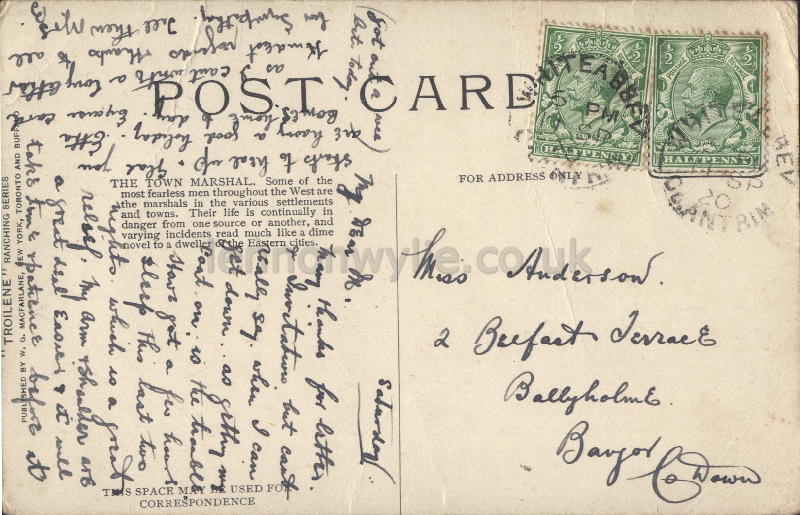 POST CARD
FOR ADDRESS ONLY
THE TOWN MARSHAL. Some of the
most fearless men throughout the West are
the marshals in the various settlements
and towns. Their life is continually in
danger from one source or another, and
varying incidents read much like a dime
novel to a dweller of the Eastern cities.
"TROILENE" RANCHING SERIES
PUBLISHED BY W. G. MACFARLANE, NEW YORK, TORONTO AND BUFF
THIS SPACE MAY BE USED FOR
CORRESPONDENCE
Saturday
My Dear M.
Many thanks for letter
& Invitation but can't
really say when I can
get down. as getting my
coat on is the trouble
Have got a few hours
sleep this last two
nights which is a great
relief. My arm & shoulder are
a great deal easier & it will
take time & patience before it
starts to heal up. Glad you
are having a good holiday. Etta
comes home to day. Excuse card
as I can't write a long letter
Kindest regards & thanks to all
for Sympathy. Tell them
(got out a wee
bit today)
Miss Anderson.
2 Belfast Terrace
Ballyholme.
Bangor
Co Down
½ ½
HALFPENNY
½ ½
POSTAGE REVENUE
HALFPENNY
WHITEABBEY
5 PM
SP
WHITEABBEY
SP
20
CO ANTRIM
lennonwylie.co.uk